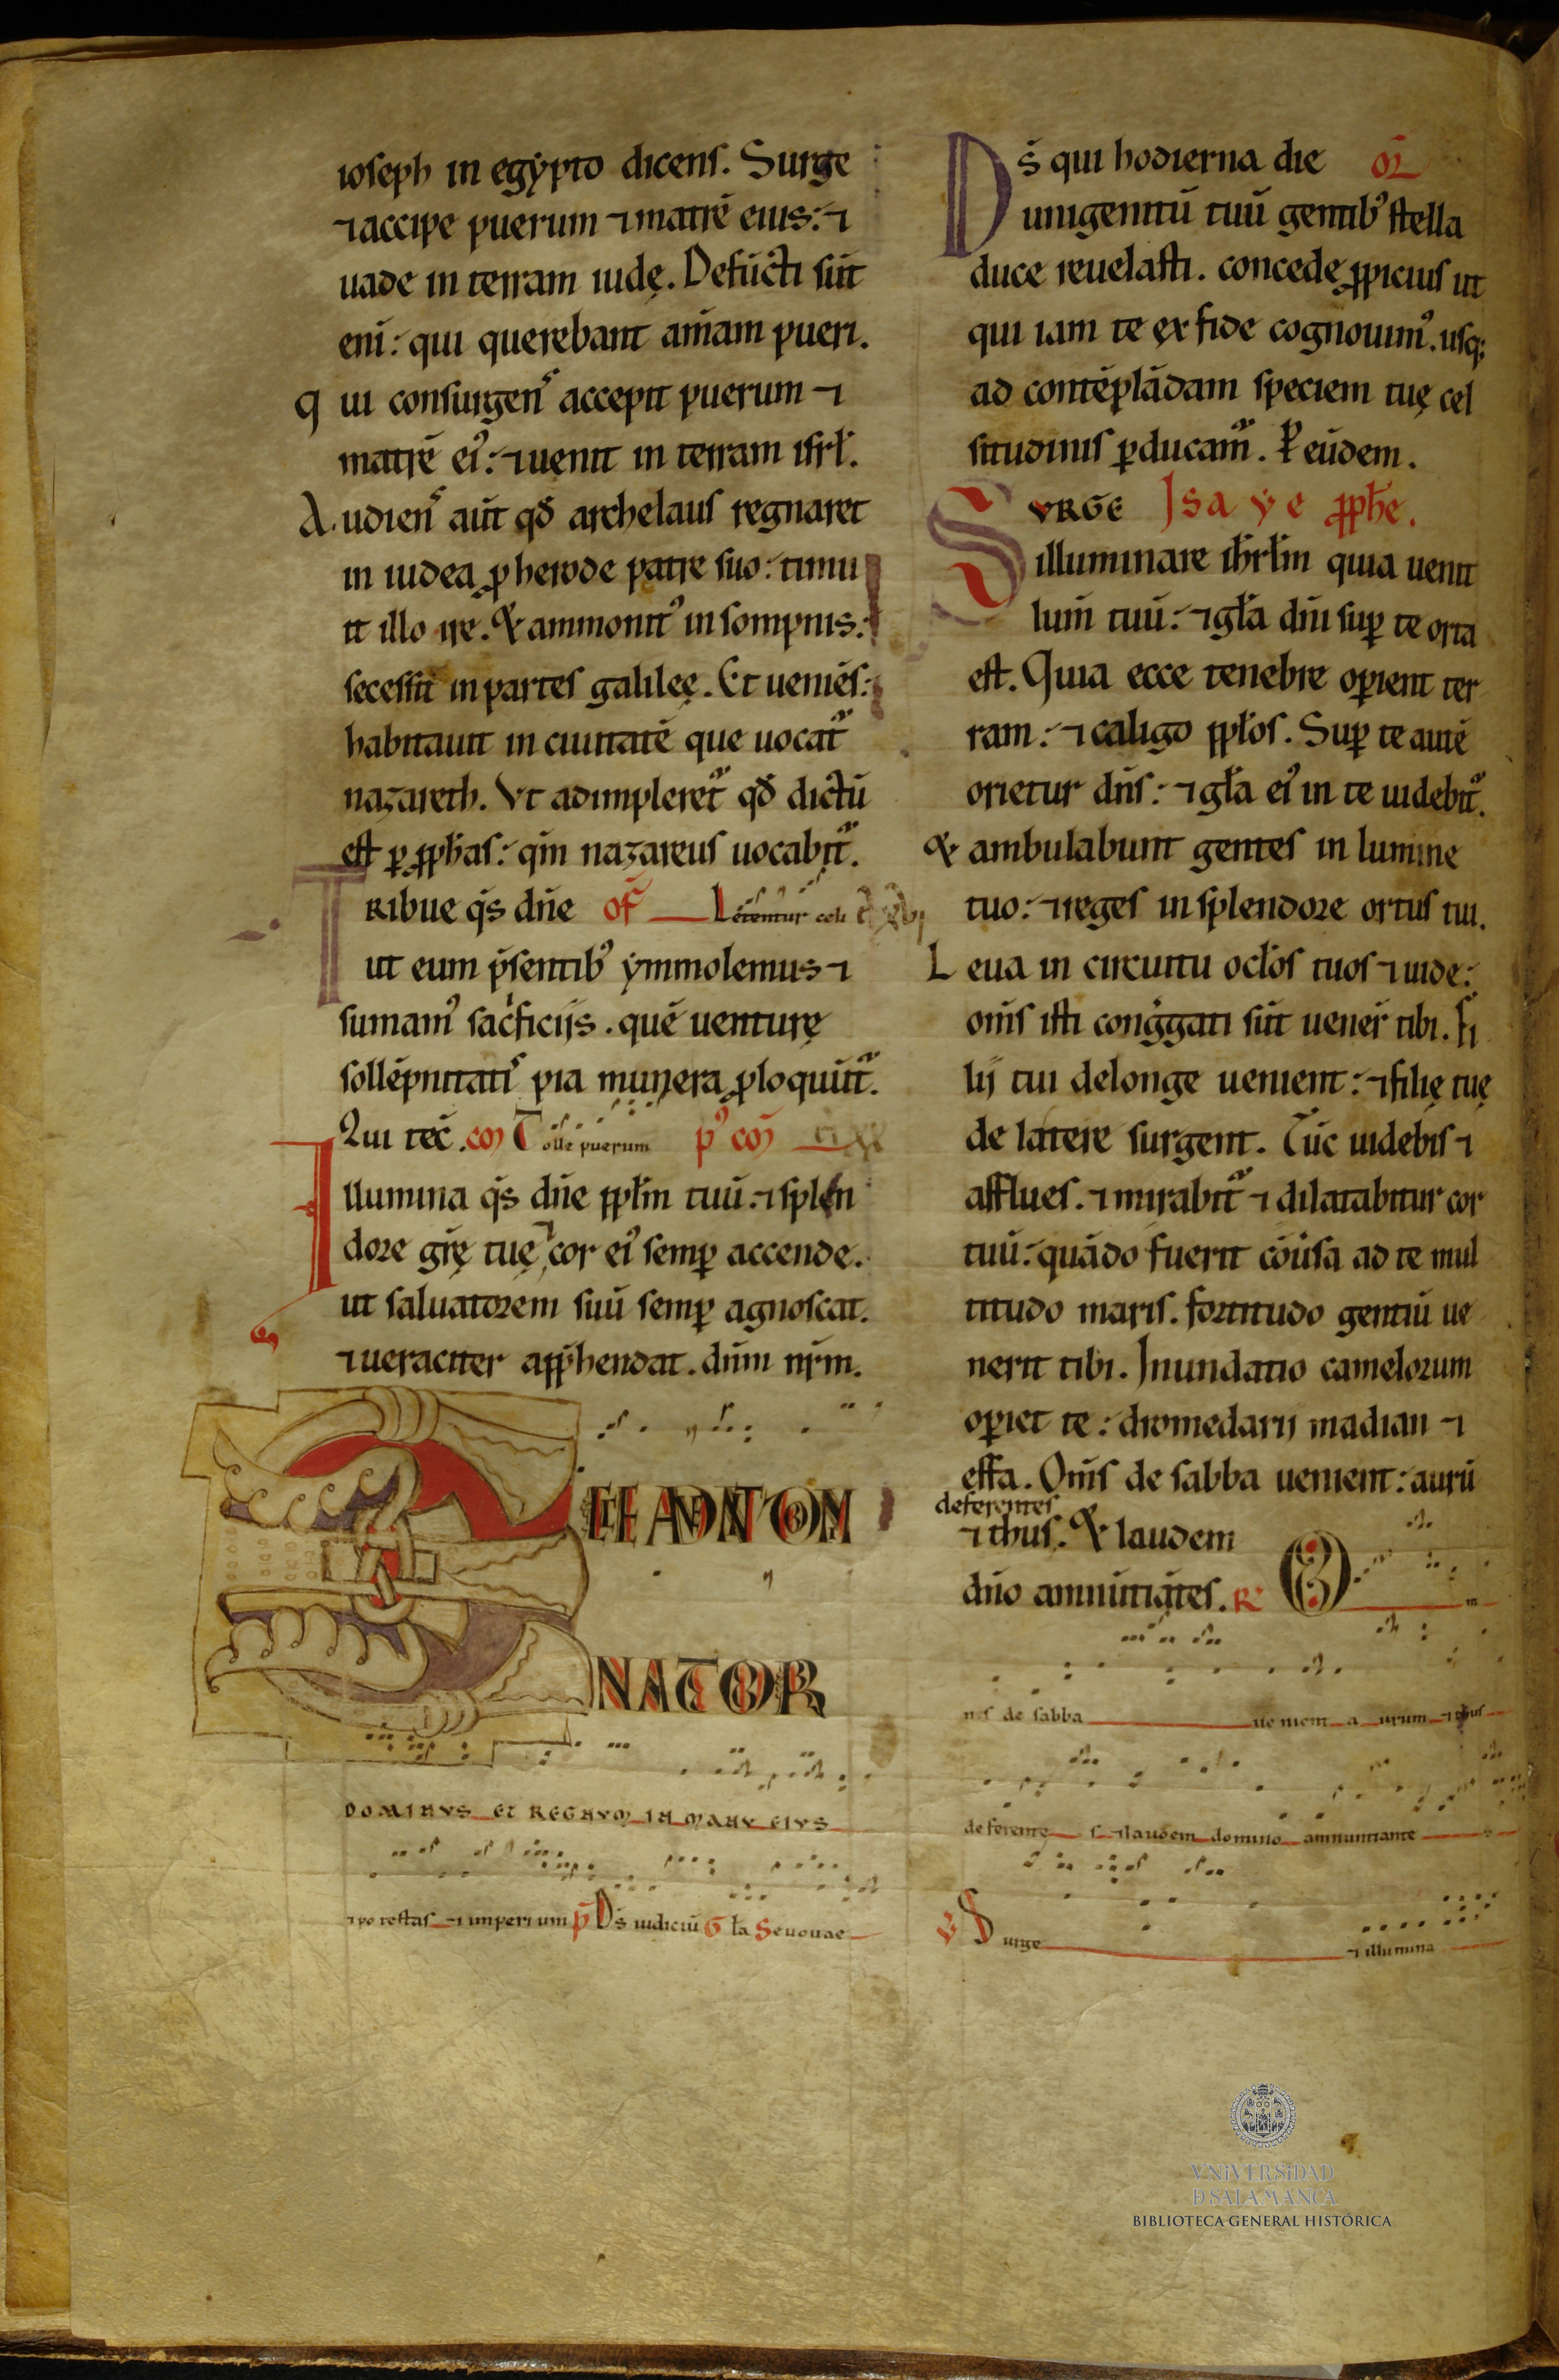 ioseph in egẏpto dicens. Surge
⁊ accipe puerum ⁊ matrē eius: ⁊
uade in terram iudę. Defūcti sūt
eni: qui querebant aīam pueri.
q ui consurgens accepit puerum ⁊
matrē ei᾽: ⁊ uenit in terram isrł.
A udiens aūt qđ archelaus regnaret
in iudea ꝓ herode patre suo: timu
it illo ire. & ammonit᾽ in sompnis:
secessit in partes galilęę. Et ueniēs:
habitauit in ciuitatē que uocat᷑
nazareth. Vt adimpleret᷑ qđ dictū
est ꝑ ꝓphas: qm̄ nazareus uocabit᷑.
TRibue q̄s dn̄e of̄ Letentur celi
ut eum p̄sentib᾽ ẏmmolemus ⁊
sumam᾽ sac̍ficijs. quē uenturę
sollēpnitatis pia munera ꝓloquūt᷑.
Qui tec̄. com̄ Tolle puerum p᾽ com̄
Illumina q̄s dn̄e ppłm tuū: ⁊ splen
dore grē tuę cor ei᾽ semꝑ accende.
ut saluatorem suū semꝑ agnoscat.
⁊ ueraciter app̄hendat. dn̄m nr̄m.
ECE ADVENIT DOMI
NATOR
DOMINVS ET REGNVM IN MANV EIVS
⁊ po testas ⁊ imperi um p̄ Ds̄ iudiciū G ła Seuouae
Ds̄ qui hodierna die or̄
unigenitū tuū gentib᾽ stella
duce reuelasti. concede ꝓpicius ut
qui iam te ex fide cognouim᾽. usq;
ad contēplādam speciem tuę cel
situdinis ꝑducam᷑. P eūdem.
SVRGE Isaẏe ꝓphe.
illuminare ihrłm quia uenit
lum̄ tuū: ⁊ gła dn̄i suꝑ te orta
est. Quia ecce tenebre oꝑient ter
ram: ⁊ caligo ppłos. Suꝑ te autē
orietur dn̄s: ⁊ gła ei᾽ in te uidebit᷑.
& ambulabunt gentes in lumine
tuo: ⁊ reges in splendore ortus tui.
L eua in circuitu ocłos tuos ⁊ uide:
om̄s isti cong̍gati sūt uener̄ tibi. Fi
lij tui delonge uenient: ⁊ filię tuę
de latere surgent. Tūc uidebis ⁊
afflues. ⁊ mirabit᷑ ⁊ dilatabitur cor
tuū: quādo fuerit cōūsa ad te mul
titudo maris. fortitudo gentiū ue
nerit tibi. Inundatio camelorum
oꝑiet te: dromedarij madian ⁊
effa. Om̄s de sabba uenient: aurū
deferentes
⁊ thus. & laudem
dn̄o annūtiātes. R᾽ O m
nes de sabba ue nient a urum ⁊ thus
deferente s ⁊ laudem domino annuntiante s
V Surge ⁊ illumina
VNIVERSIDAD
D SALAMANCA
BIBLIOTECA GENERAL HISTÓRICA